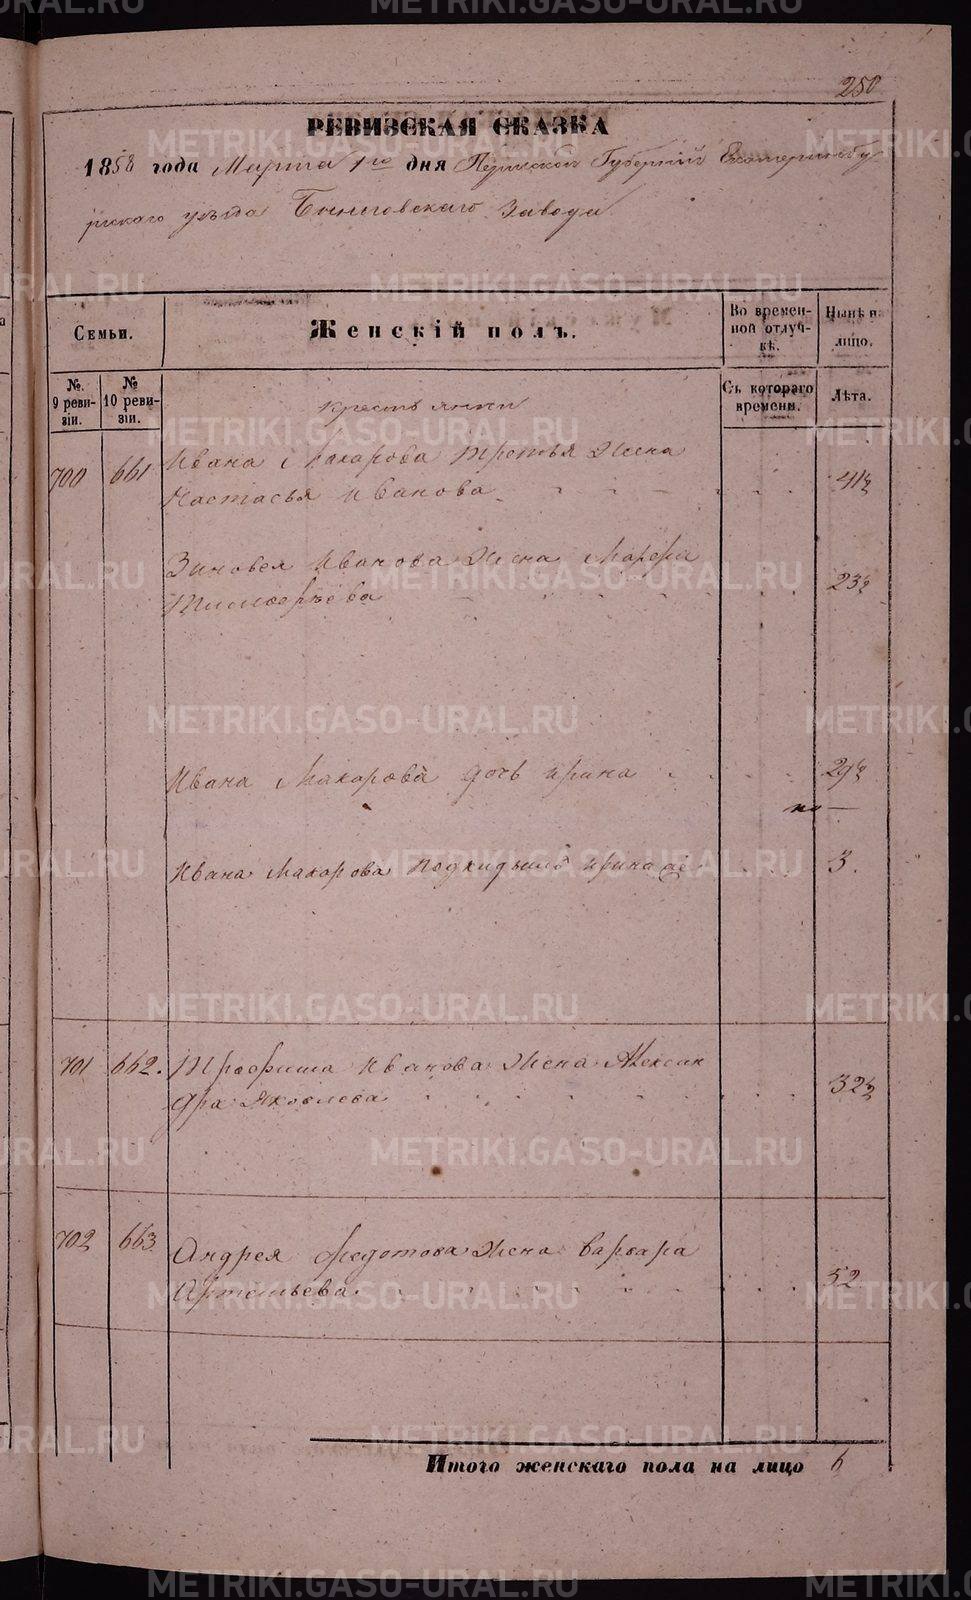 250
РЕВИЗСКАЯ СКАЗКА
1858 года Марта 1го дня Пермской Губернии Екатеринбу
ргскаго уезда Бынговскаго Завода
Семьи.
Женскій полъ.
Во времен-
ной отлуч-
кѣ.
Нынѣ на
лицо.
№
9 реви-
зіи.
№
10 реви-
зіи.
Съ котораго
времени.
Лѣта.
Крестьянки
700 661 Ивана Макарова третья жена
Настасья Иванова 41½
Зиновея Иванова жена Марфа
Тимофеева 23½
Ивана Макарова дочь Ирина 29½
Ивана Макарова подкидышъ Ирина 3.
701 662. Трофима Иванова жена Алексан
дра Яковлева 32½
702 663 Андрея Федотова жена Варвара
Артемьева 52
Итого женскаго пола на лицо 6
METRIKI.GASO-URAL.RU